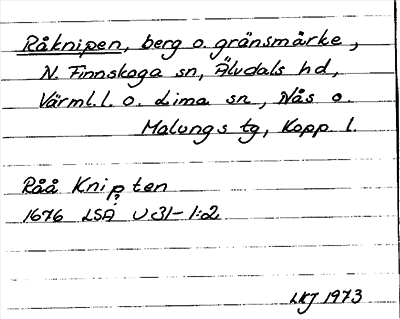 Råknipen, berg o. gränsmärke,
N. Finnskoga sn, Älvdals hd,
Värml. l. o. Lima sn, Nås o.
Malungs tg, Kopp. l.
Råå Knipten
?
1676 LSA U31-1:2
LKJ 1973